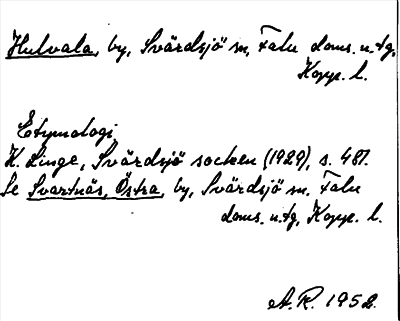 Hulvala, by, Svärdsjö sn, Falu doms. o. tg,
Kopp. l.
Etymologi
K. Linge, Svärdsjö socken (1929), s. 487.
Se Svartnäs, Östra, by, Svärdsjö sn. Falu
doms. o. tg, Kopp. l.
A.R. 1952.